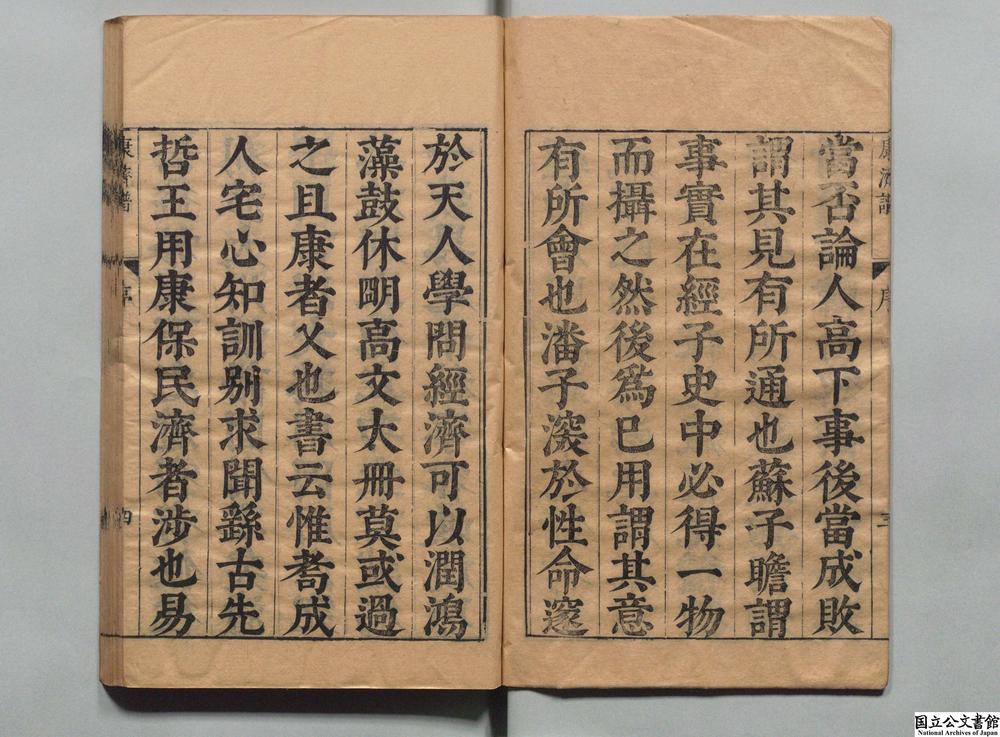 康濟譜
序
三
當否論人高下事後當成敗
謂其見有所通也蘇子瞻謂
事實在經子史中必得一物
而攝之然後爲已用謂其意
有所會也潘子深於性命邃
於天人學問經濟可以潤鴻
藻鼓休明高文大冊莫或過
之且康者乂也書云惟耇成
人宅心知訓别求聞繇古先
哲王用康保民濟者涉也易
康濟譜
序
四
国立公文書館
National Archives of Japan